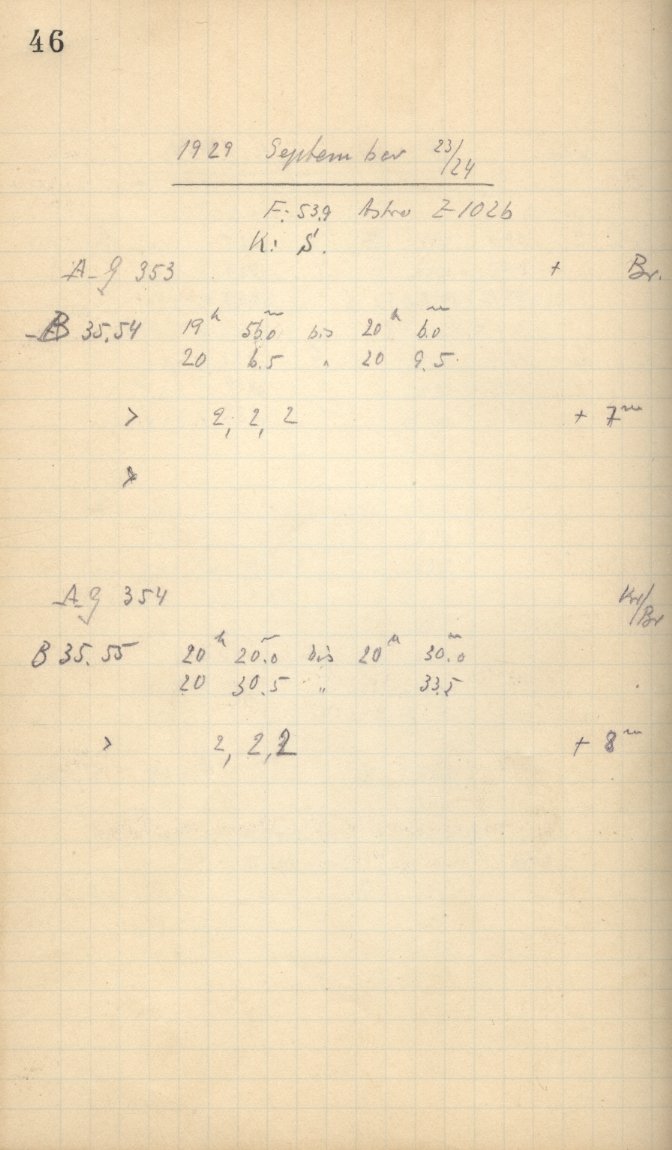 46
1929 September 23/24
F: 53.9 Astro Z 1026
K: S.
A-G 353 + Br.
B 35.54 19h 56.0m bis 20h 6.0m
20 6.5 " 20 9.5
> 2, 2, 2 + 7m
>
A-G 354 Kr/Br
B 35.55 20h 20.0m bis 20h 30.0m
20 30.5 " 33.5
> 2, 2, 2 + 8m